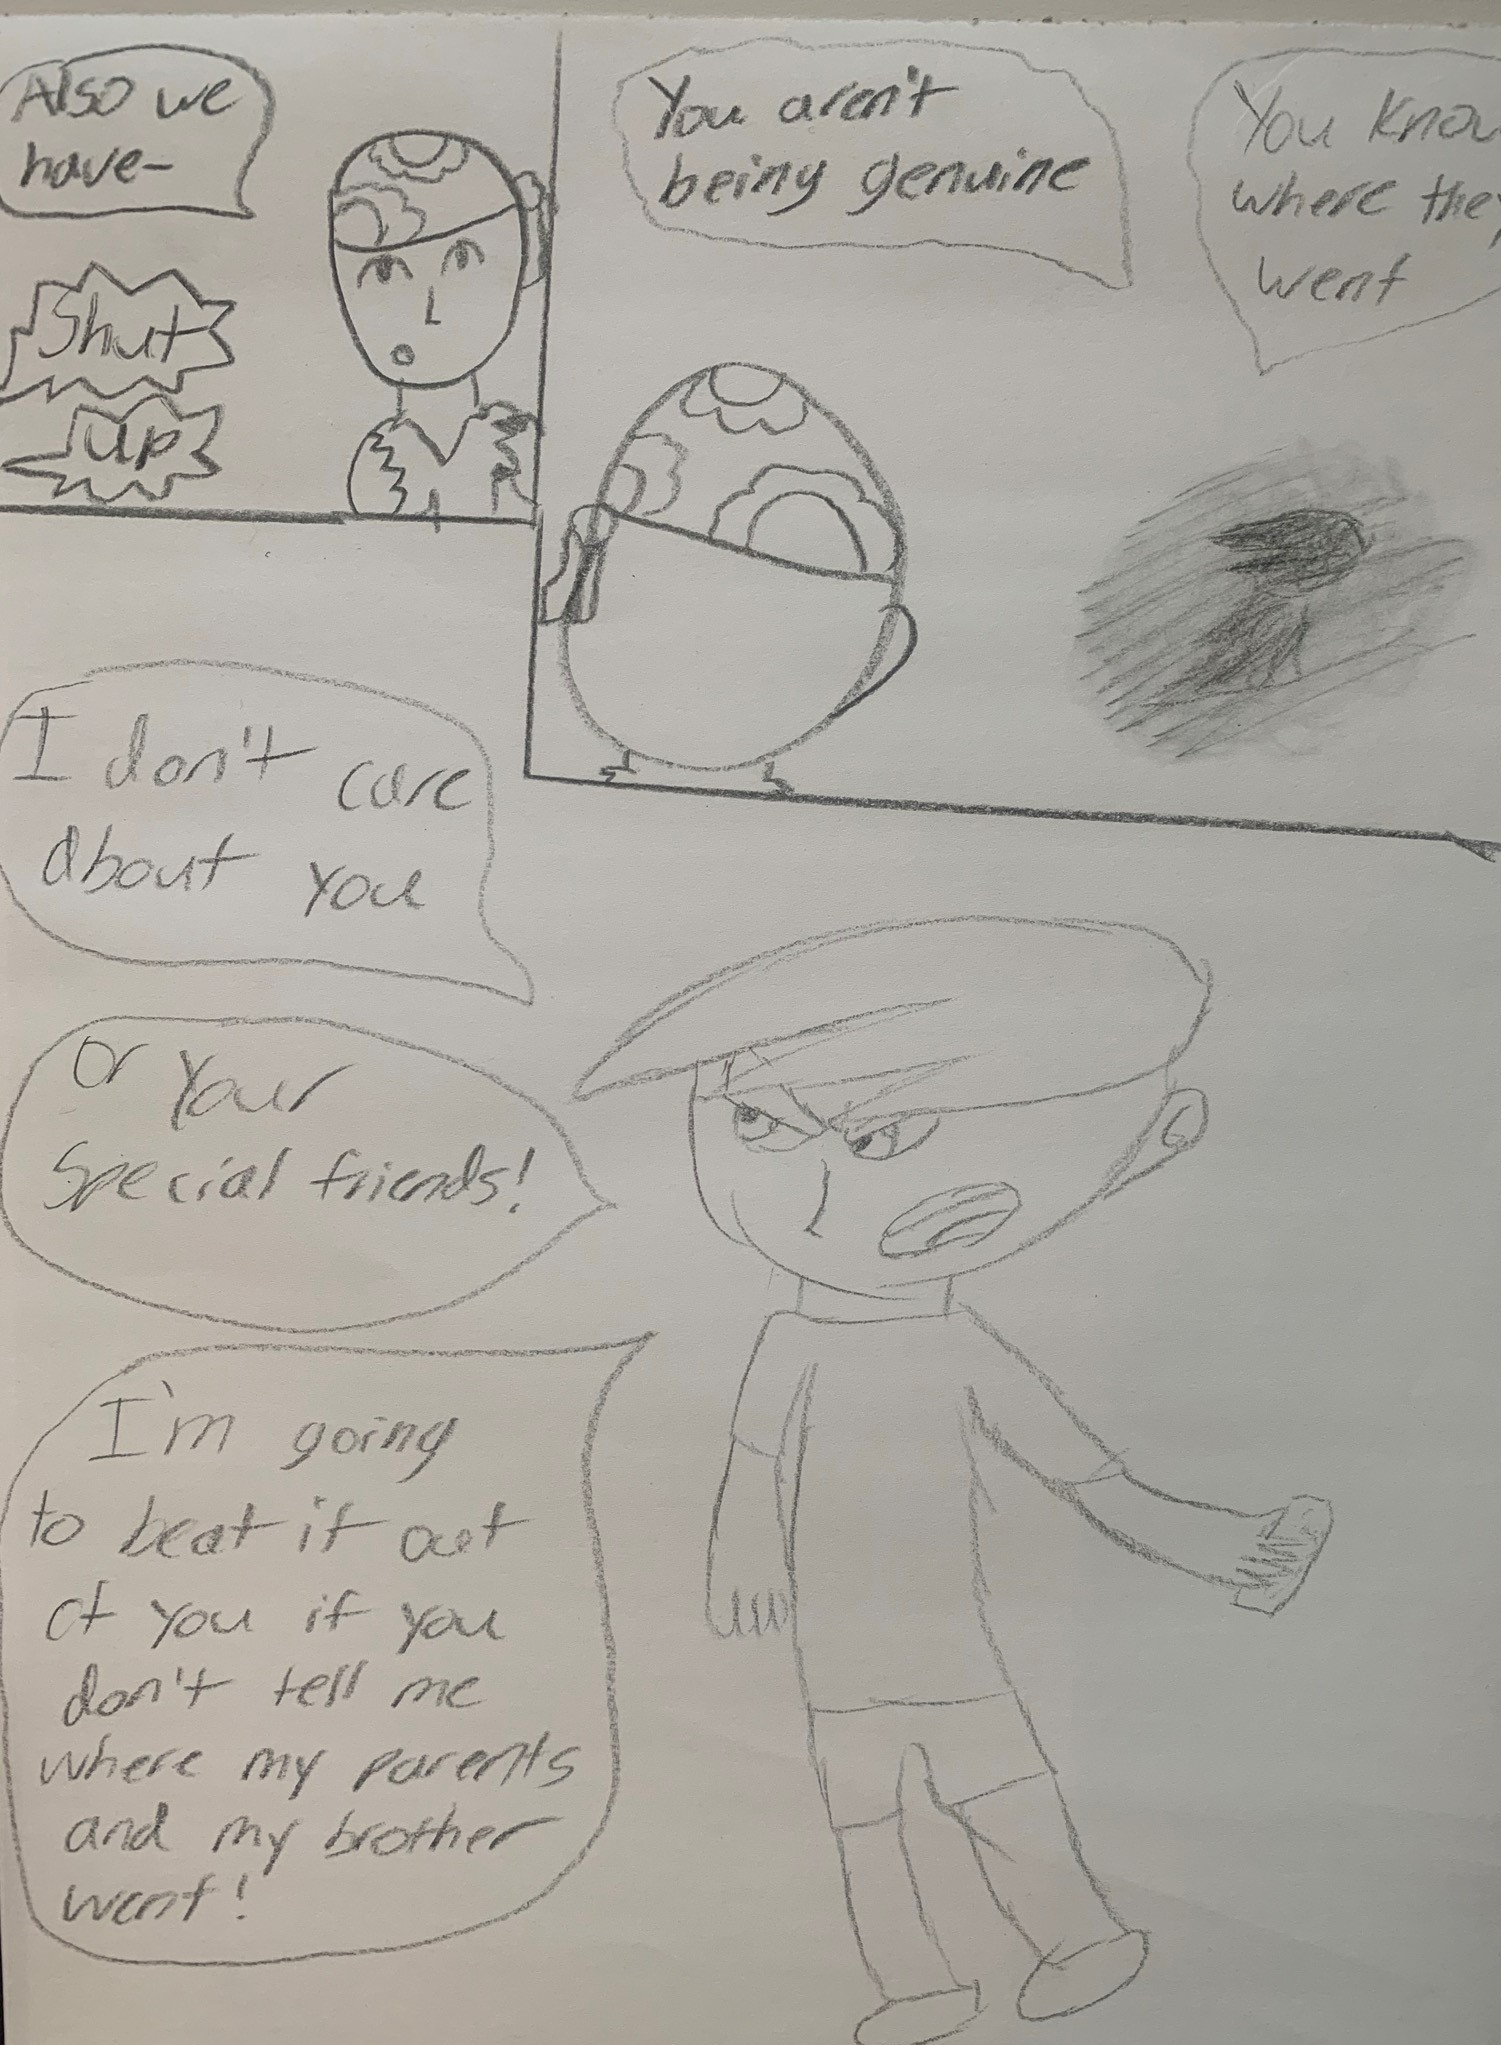 Also we
have-
Shut
up
You aren't
being genuine
You know
where they
went
I don't care
about you
Or Your
Special friends!
I'm going
to beat it out
of you if you
don't tell me
where my parents
and my brother
went!